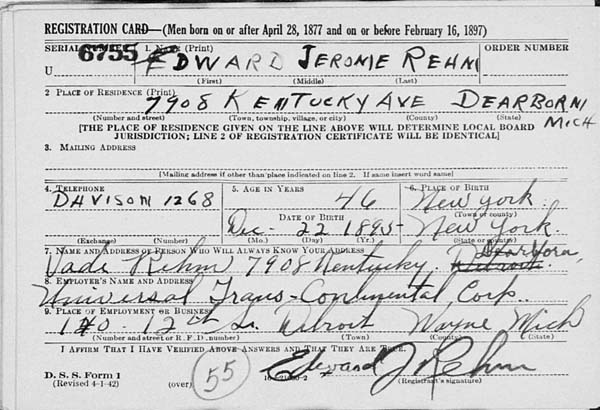 REGISTRATION CARD—(Men born on or after April 28, 1877 and on or before February 16, 1897)
SERIAL NUMBER 1. Name (Print) ORDER NUMBER
U 6755 EDWARD JEROME REHM
(First) (Middle) (Last)
2 Place of Residence (Print)
7908 KENTUCKY AVE DEARBORN
MICH
(Number and street) (Town, township, village, or city) (County) (State)
[THE PLACE OF RESIDENCE GIVEN ON THE LINE ABOVE WILL DETERMINE LOCAL BOARD
JURISDICTION; LINE 2 OF REGISTRATION CERTIFICATE WILL BE IDENTICAL]
3. Mailing Address
[Mailing address if other than place indicated on line 2. If same insert word same]
4. Telephone 5. Age in Years 6. Place of Birth
DAVISON 1268 46 New York
Date of Birth (Town or county)
Dec. 22 1895 New York
(Exchange) (Number) (Mo.) (Day) (Yr.) (State or country)
7. Name and Address of Person Who Will Always Know Your Address
Rehm 7908 Kentucky. Detroit Dearborn,
8. Employer's Name and Address
Universal Trans-Continental Corp.
9. Place of Employment or Business
12th Detroit Wayne Mich
(Number and street or R. F. D. number) (Town) (County) (State)
I Affirm That I Have Verified Above Answers and That They Are True.
D. S. S. Form 1
(Revised 4-1-42) (over) 55 Edward J Rehm
(Registrant's signature)